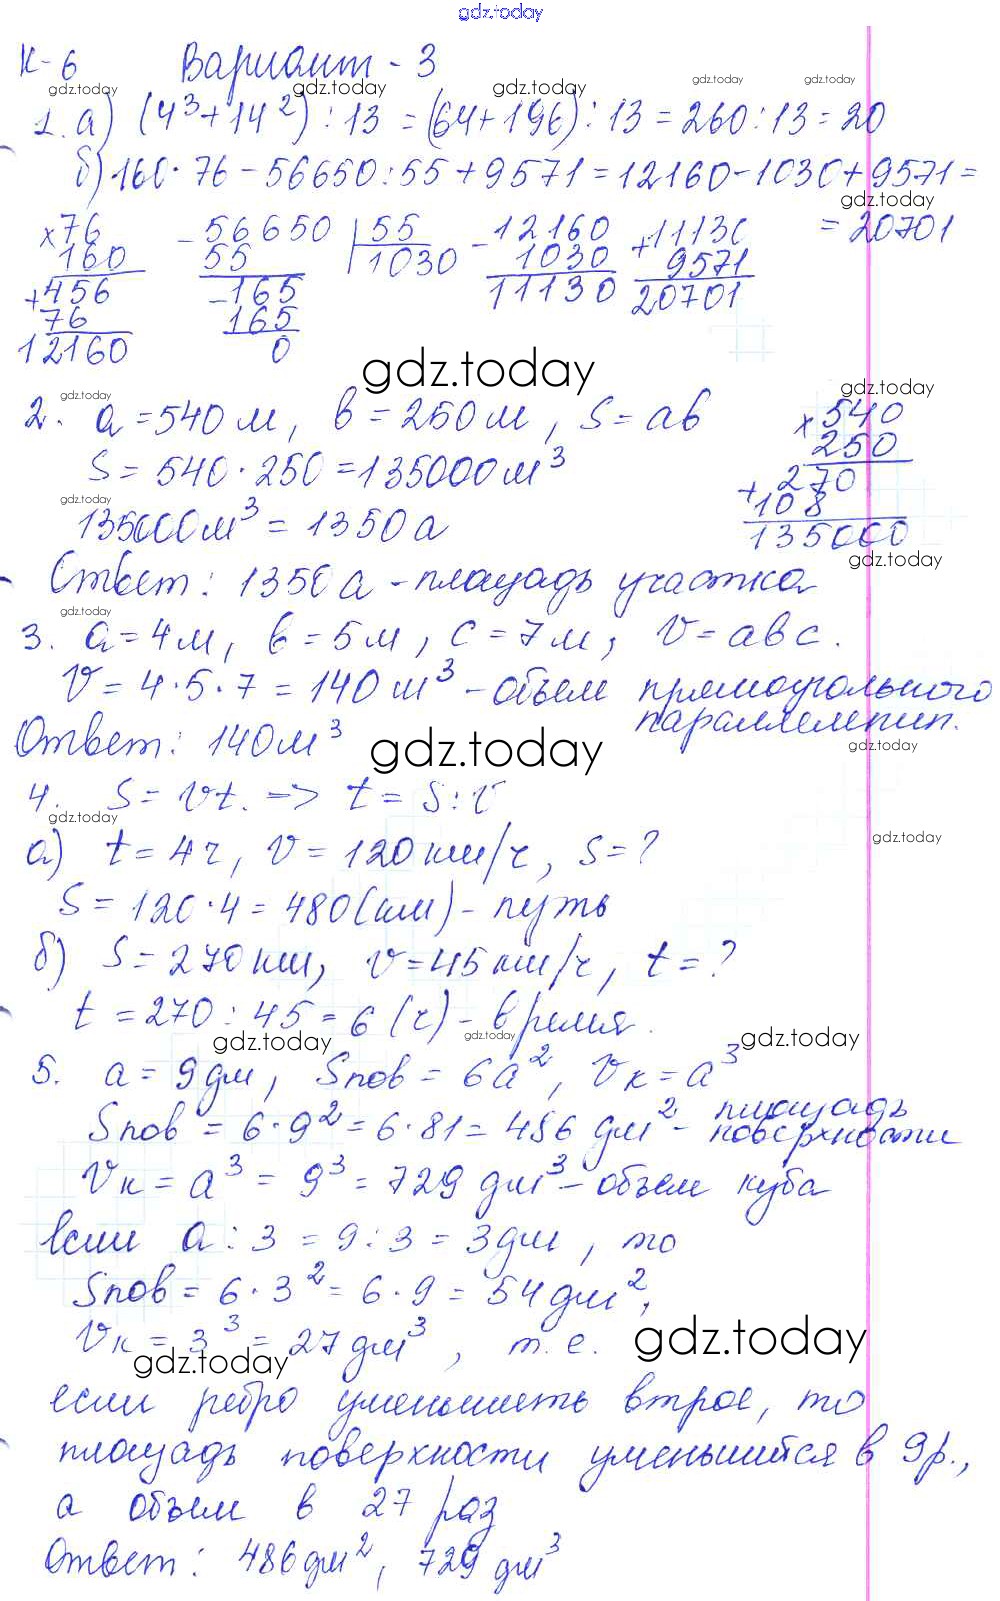 gdz.today
К-6 Вариант - 3
gdz.today gdz.today gdz.today gdz.today
1. а) (4³+14²):13 = (64+196):13 = 260:13 = 20
б) 160·76 - 56650:55 + 9571 = 12160-1030+9571 =
gdz.today
= 20701
×76
160
+456
76
12160
-56650 | 55
55 1030
-165
165
0
-12160
1030
11130
+11130
9571
20701
gdz.today
gdz.today gdz.today
2. a = 540 м, в = 250 м, S = aв
S = 540·250 = 135000 м³
gdz.today
135000 м³ = 1350 а
×540
250
270
+108
135000
gdz.today
Ответ: 1350 а - площадь участка
gdz.today
3. a = 4 м, в = 5 м, с = 7 м, V = aвс.
V = 4·5·7 = 140 м³ - объем прямоугольного
параллелепип.
Ответ: 140 м³
gdz.today gdz.today
4. S = Vt. => t = S:V
gdz.today gdz.today
а) t = 4 ч, V = 120 км/ч, S = ?
S = 120·4 = 480 (км) - путь
б) S = 270 км, V = 45 км/ч, t = ?
t = 270:45 = 6 (ч) - время.
gdz.today gdz.today gdz.today
5. a = 9 дм, Sпов = 6a², Vк = a³
Sпов = 6·9² = 6·81 = 486 дм² - площадь
поверхности
Vк = a³ = 9³ = 729 дм³ - объем куба
если a:3 = 9:3 = 3 дм, то
Sпов = 6·3² = 6·9 = 54 дм²,
Vк = 3³ = 27 дм³, т.е.
gdz.today gdz.today
если ребро уменьшить втрое, то
площадь поверхности уменьшится в 9 р.,
а объем в 27 раз
Ответ: 486 дм², 729 дм³